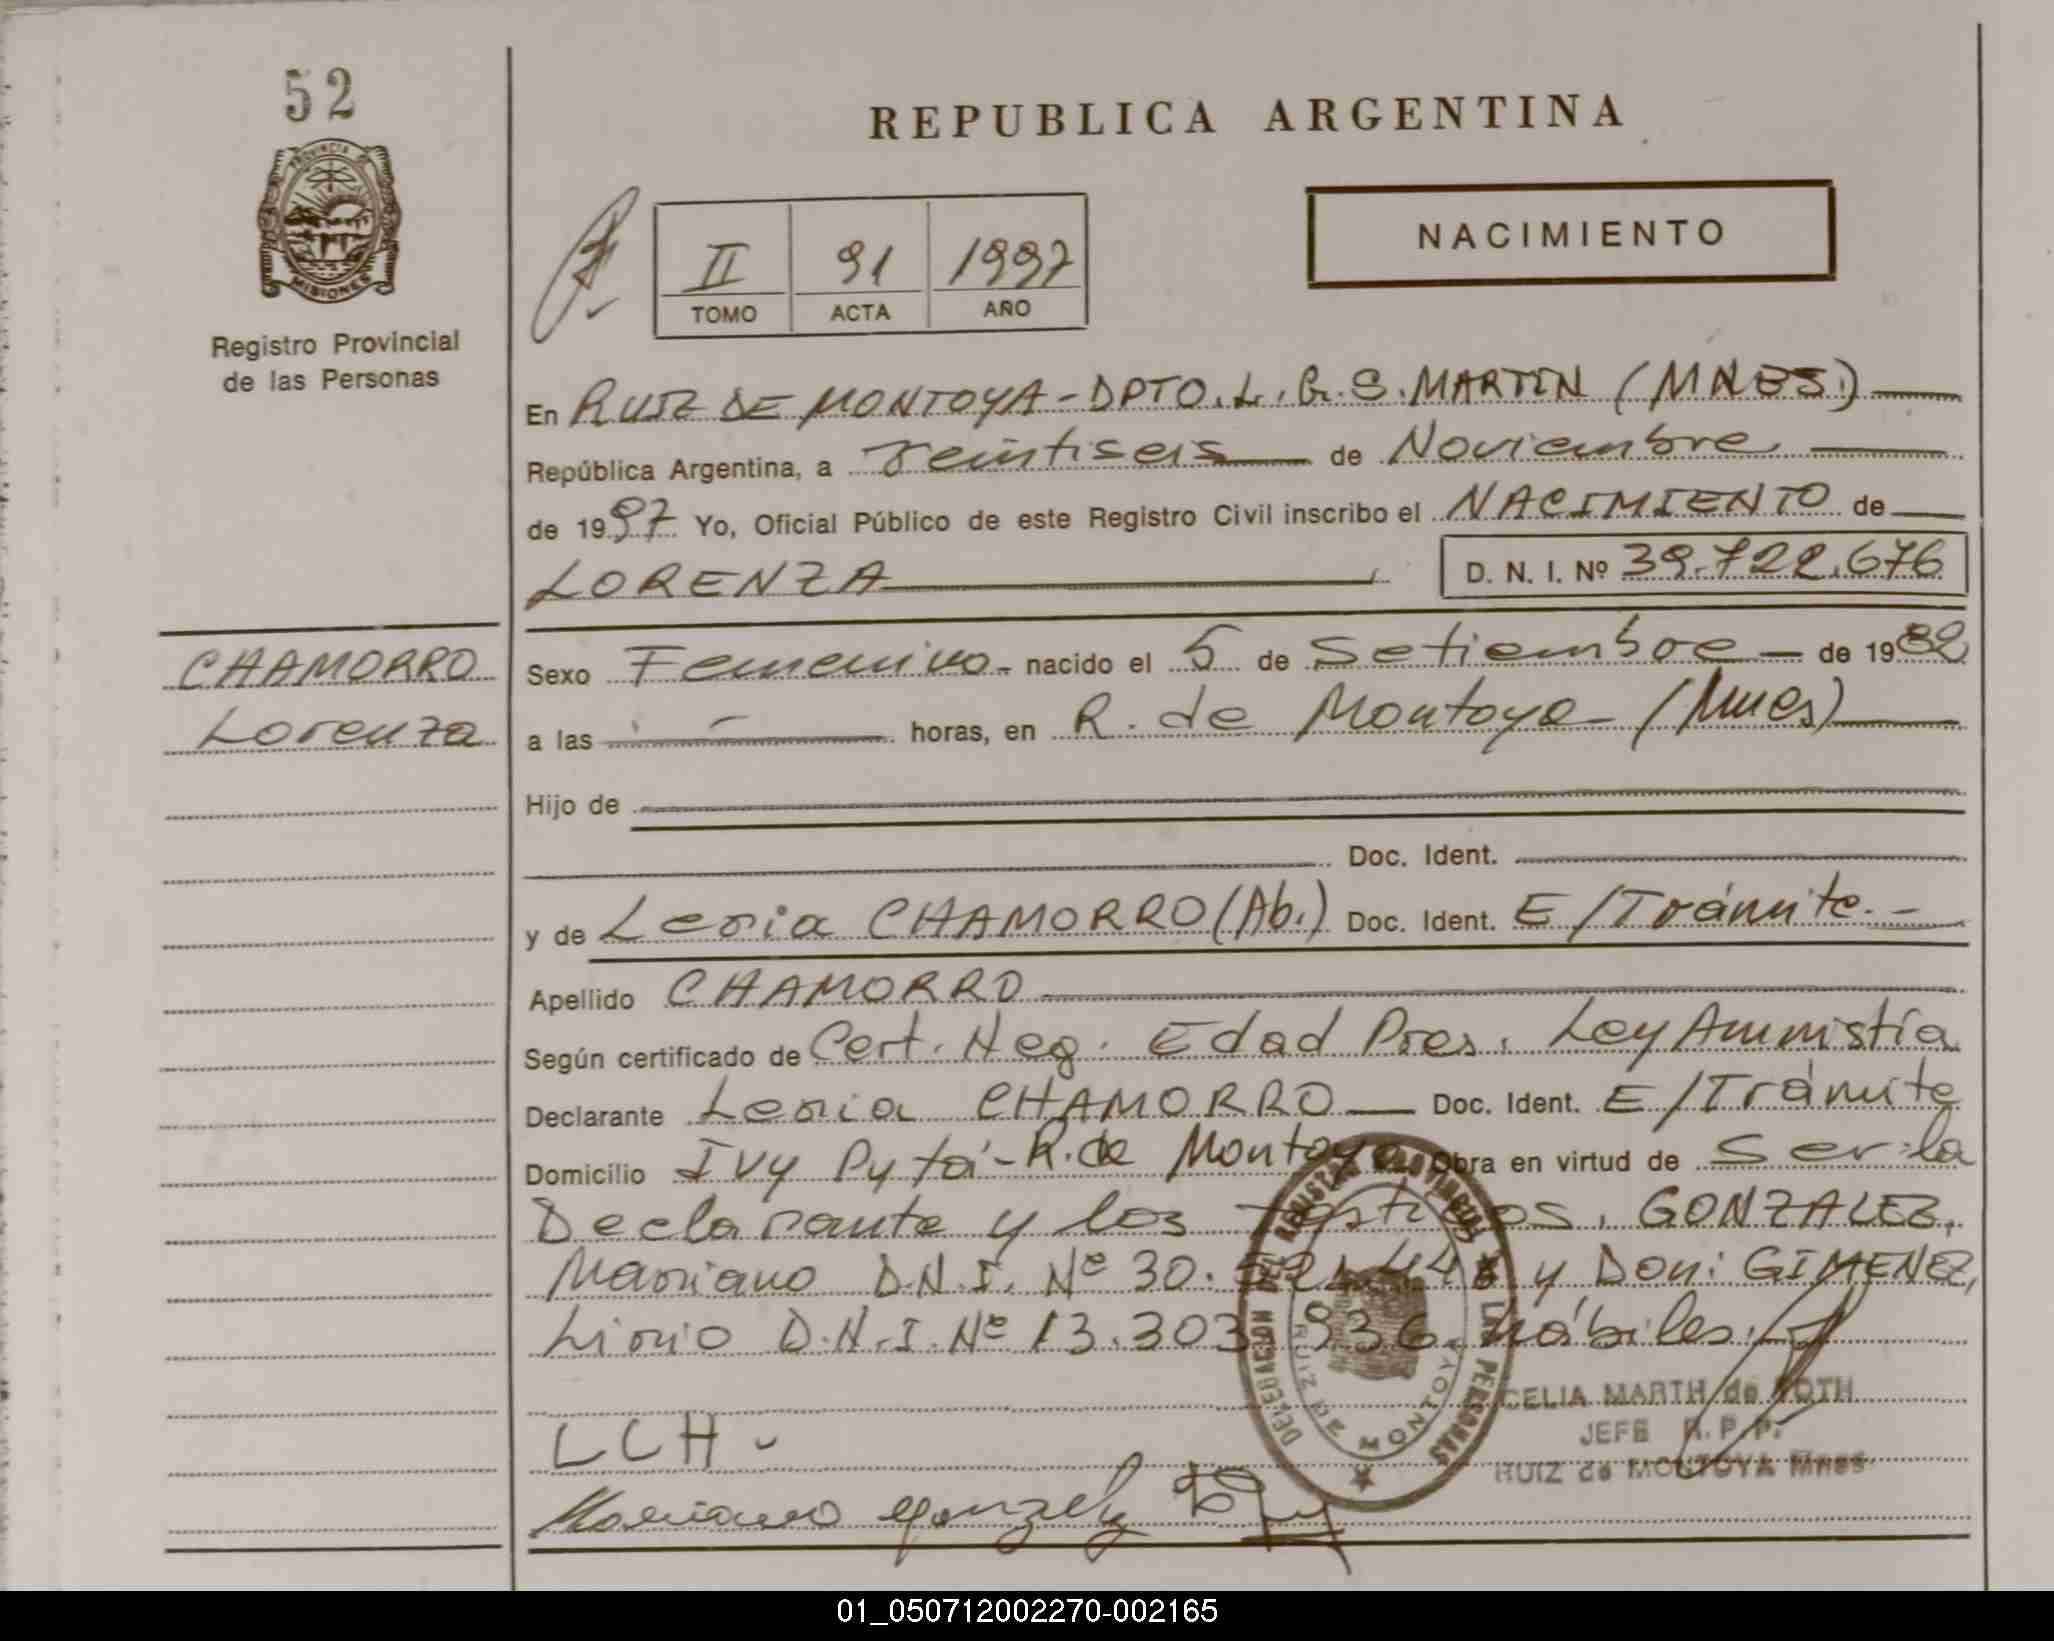 52
REPUBLICA ARGENTINA
PROVINCIA DE
MISIONES
Registro Provincial
de las Personas
II 91 1997
TOMO ACTA AÑO
NACIMIENTO
En RUIZ DE MONTOYA - DPTO. L. G. S. MARTIN (MNES.)
República Argentina, a Veintiseis de Noviembre
de 1997 Yo, Oficial Público de este Registro Civil inscribo el NACIMIENTO de
LORENZA D. N. I. Nº 39.722.676
CHAMORRO
Lorenza
Sexo Femenino - nacido el 5 de Setiembre de 1982
a las horas, en R. de Montoya (Mnes)
Hijo de
Doc. Ident.
y de Leria CHAMORRO (Ab.) Doc. Ident. E/Trámite. -
Apellido CHAMORRO
Según certificado de Cert. Neg. Edad Pres. Ley Amnistía
Declarante Leria CHAMORRO Doc. Ident. E/Trámite
Domicilio Ivy Pytá - R. de Montoya. Obra en virtud de Ser la
Declarante y los testigos, GONZALEZ,
Mariano D.N.I. Nº 30. y Don: GIMENEZ,
Lirio D.N.I. Nº 13.303.936. hábiles.
LCH -
Mariano Gonzalez
DELEGACION DEL REGISTRO PROVINCIAL DE LAS PERSONAS
RUIZ DE MONTOYA
CELIA MARTH de ROTH
JEFE R. P. P.
RUIZ de MONTOYA Mnes
01_050712002270-002165